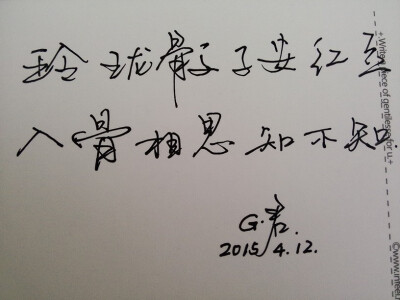 玲珑骰子安红豆
入骨相思知不知.
G.君.
2015.4.12.
+ Written piece of gentleness for u. +
©www.